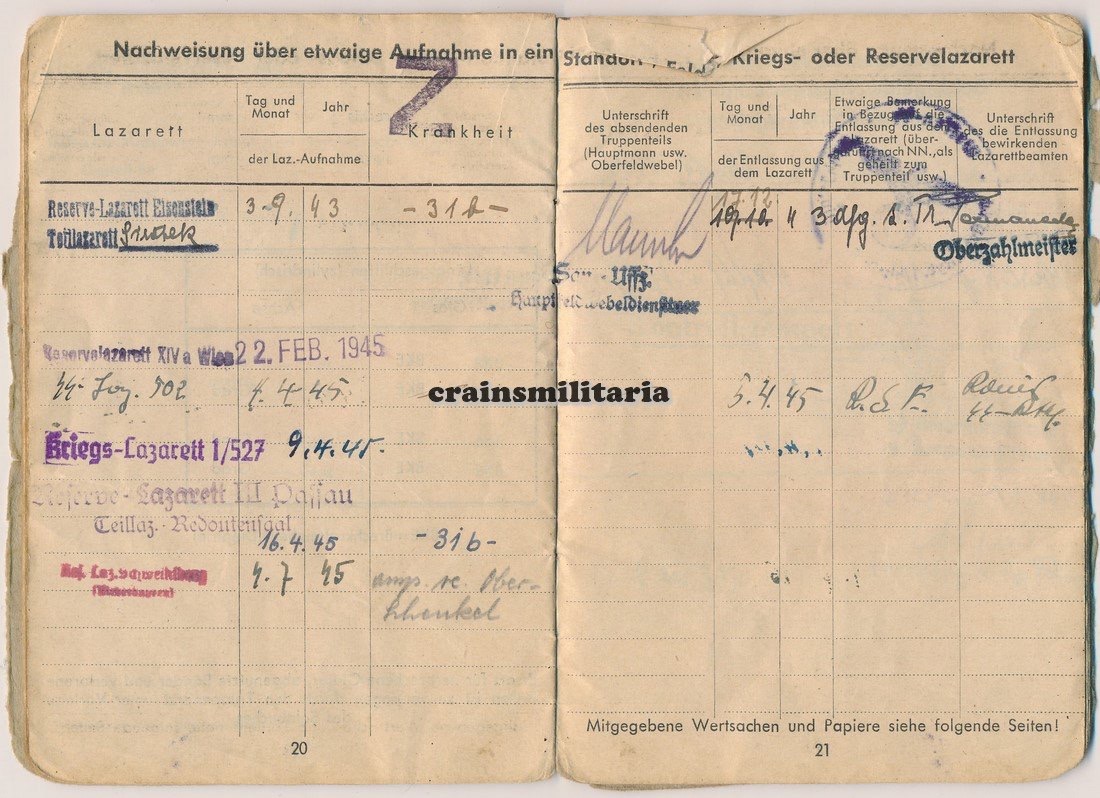 Nachweisung über etwaige Aufnahme in ein Standort Kriegs- oder Reservelazarett
Z
Lazarett
Tag und Monat
Jahr
der Laz.-Aufnahme
Krankheit
Unterschrift
des absendenden
Truppenteils
(Hauptmann usw.
Oberfeldwebel)
Tag und
Monat
Jahr
der Entlassung aus
dem Lazarett
Etwaige Bemerkung
in Bezug auf die
Entlassung aus dem
Lazarett (über-
nach NN., als
geheilt zum
Truppenteil usw.)
Unterschrift
des die Entlassung
bewirkenden
Lazarettbeamten
Reserve-Lazarett Eisenstein 3-9. 43 -31b- 17.12 43
Teillazarett
Oberzahlmeister
Uffz.
Hauptfeldwebeldiensttuer
Reservelazarett XIVa Wien 22. FEB. 1945
Laz. 502 4.4 45 5.4.45
crainsmilitaria
Kriegs-Lazarett 1/527 9.4.45.
Reserve-Lazarett III Passau
Teillaz. Redoutensaal
16.4.45 -31b-
4.7 45 amp. re. Ober-
schenkel
Mitgegebene Wertsachen und Papiere siehe folgende Seiten!
20
21